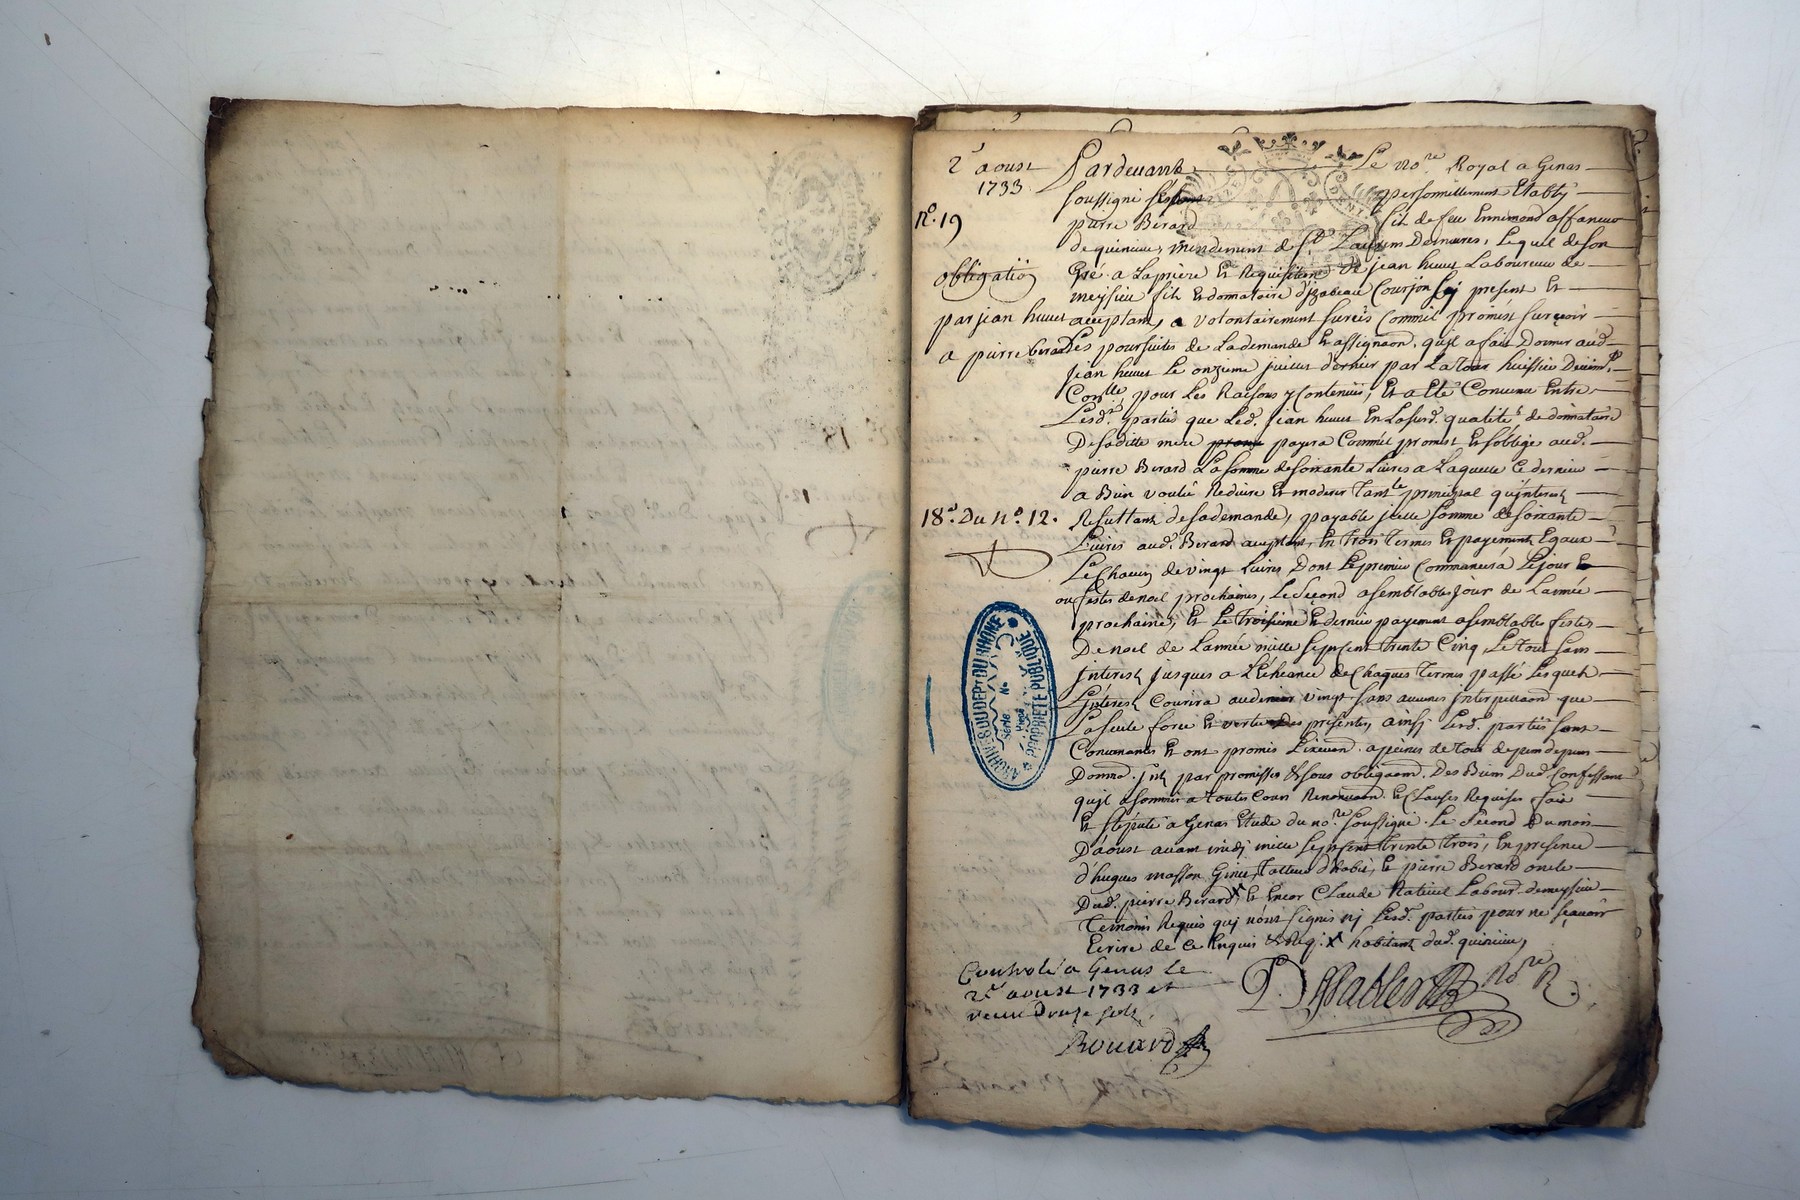 2e aoust
1733
No. 19
obligation
par jean huuet
a pierre berard
18s. Du No. 12.
Pardeuant Le nore Royal a Genas
soussigné personnellement Etably
pierre Bérard fils de feu Ennemond affaneur
de quincieu, mendement de St Laurens Demures, Lequel de son
Gré a La prière Et Requisition de jean huuet Laboureur de
meysieu fils Et donnataire d'jzabeau Courjon jcj present Et
acceptant, a volontairement surcis Comme il promest surçoir
Les poursuites de La demande Et assignaon. qu'jl a fait Donner aud.
jean huuet Le onzieme juillet dernier par Latour huissier
pour Les Raisons y Contenües, Et a Eté Conuenu Entre
Lesd. parties que Led. jean huuet En La susd. qualité de donnataire
De saditte mere payera Comme il promest Et s'oblige aud.
pierre Bérard La somme de soixante Liures a Laquelle ce dernier
a Bien voulu Reduire Et moderer Tant Le principal qu'jnterest
Resultant de sa demande, payable jcelle somme de soixante
Liures aud. Berard acceptant, En trois Termes Et payements Egaux
de Chacun de vingt Liures Dont Le premier Commancera Le jour Et
ou festes de noel prochaines, Le second a semblable jour de L'année
prochaine, Et Le troisieme Et dernier payement a semblables festes
De noel de L'année mille sepscent trente Cinq, Le tout sans
jnterest jusques a L'écheance de Chaques Termes passé Lesquels
L'jnterest Courira au denier vingt sans aucunes jnterpellaon que
La seule force Et vertu Des présentes, ainsj Lesd. parties sont
Conuenantes Et ont promis L'exeuon. a peines de tous depens
Domma. jnts par promisses Et sous obligaon. Des Biens Dud. Confessant
qu'jl a soumis a toutes Cours Renonciaon. Et Clauses Requises fait
Et stepulé a Genas Etude du nore soussigné. Le second Du mois
D'aoust auant midj mille sepscent trente trois, En presence
d'hugues masson Tailleur d'habit, Et pierre Berard oncle
Dud. pierre Berard X Et Encor Claude Labour. de meysieu
Temoins Requis quj n'ont signés nj Lesd. parties pour ne sçauoir
Ecrire de Ce Enquis Et Req. X habitant dud. quincieu,
Controlé a Genas Le
2e aoust 1733 et
receu Douze sols
Rouard
nore R.
ARCHIVES DU DEPT DU RHONE
PROPRIETE PUBLIQUE
Série
No